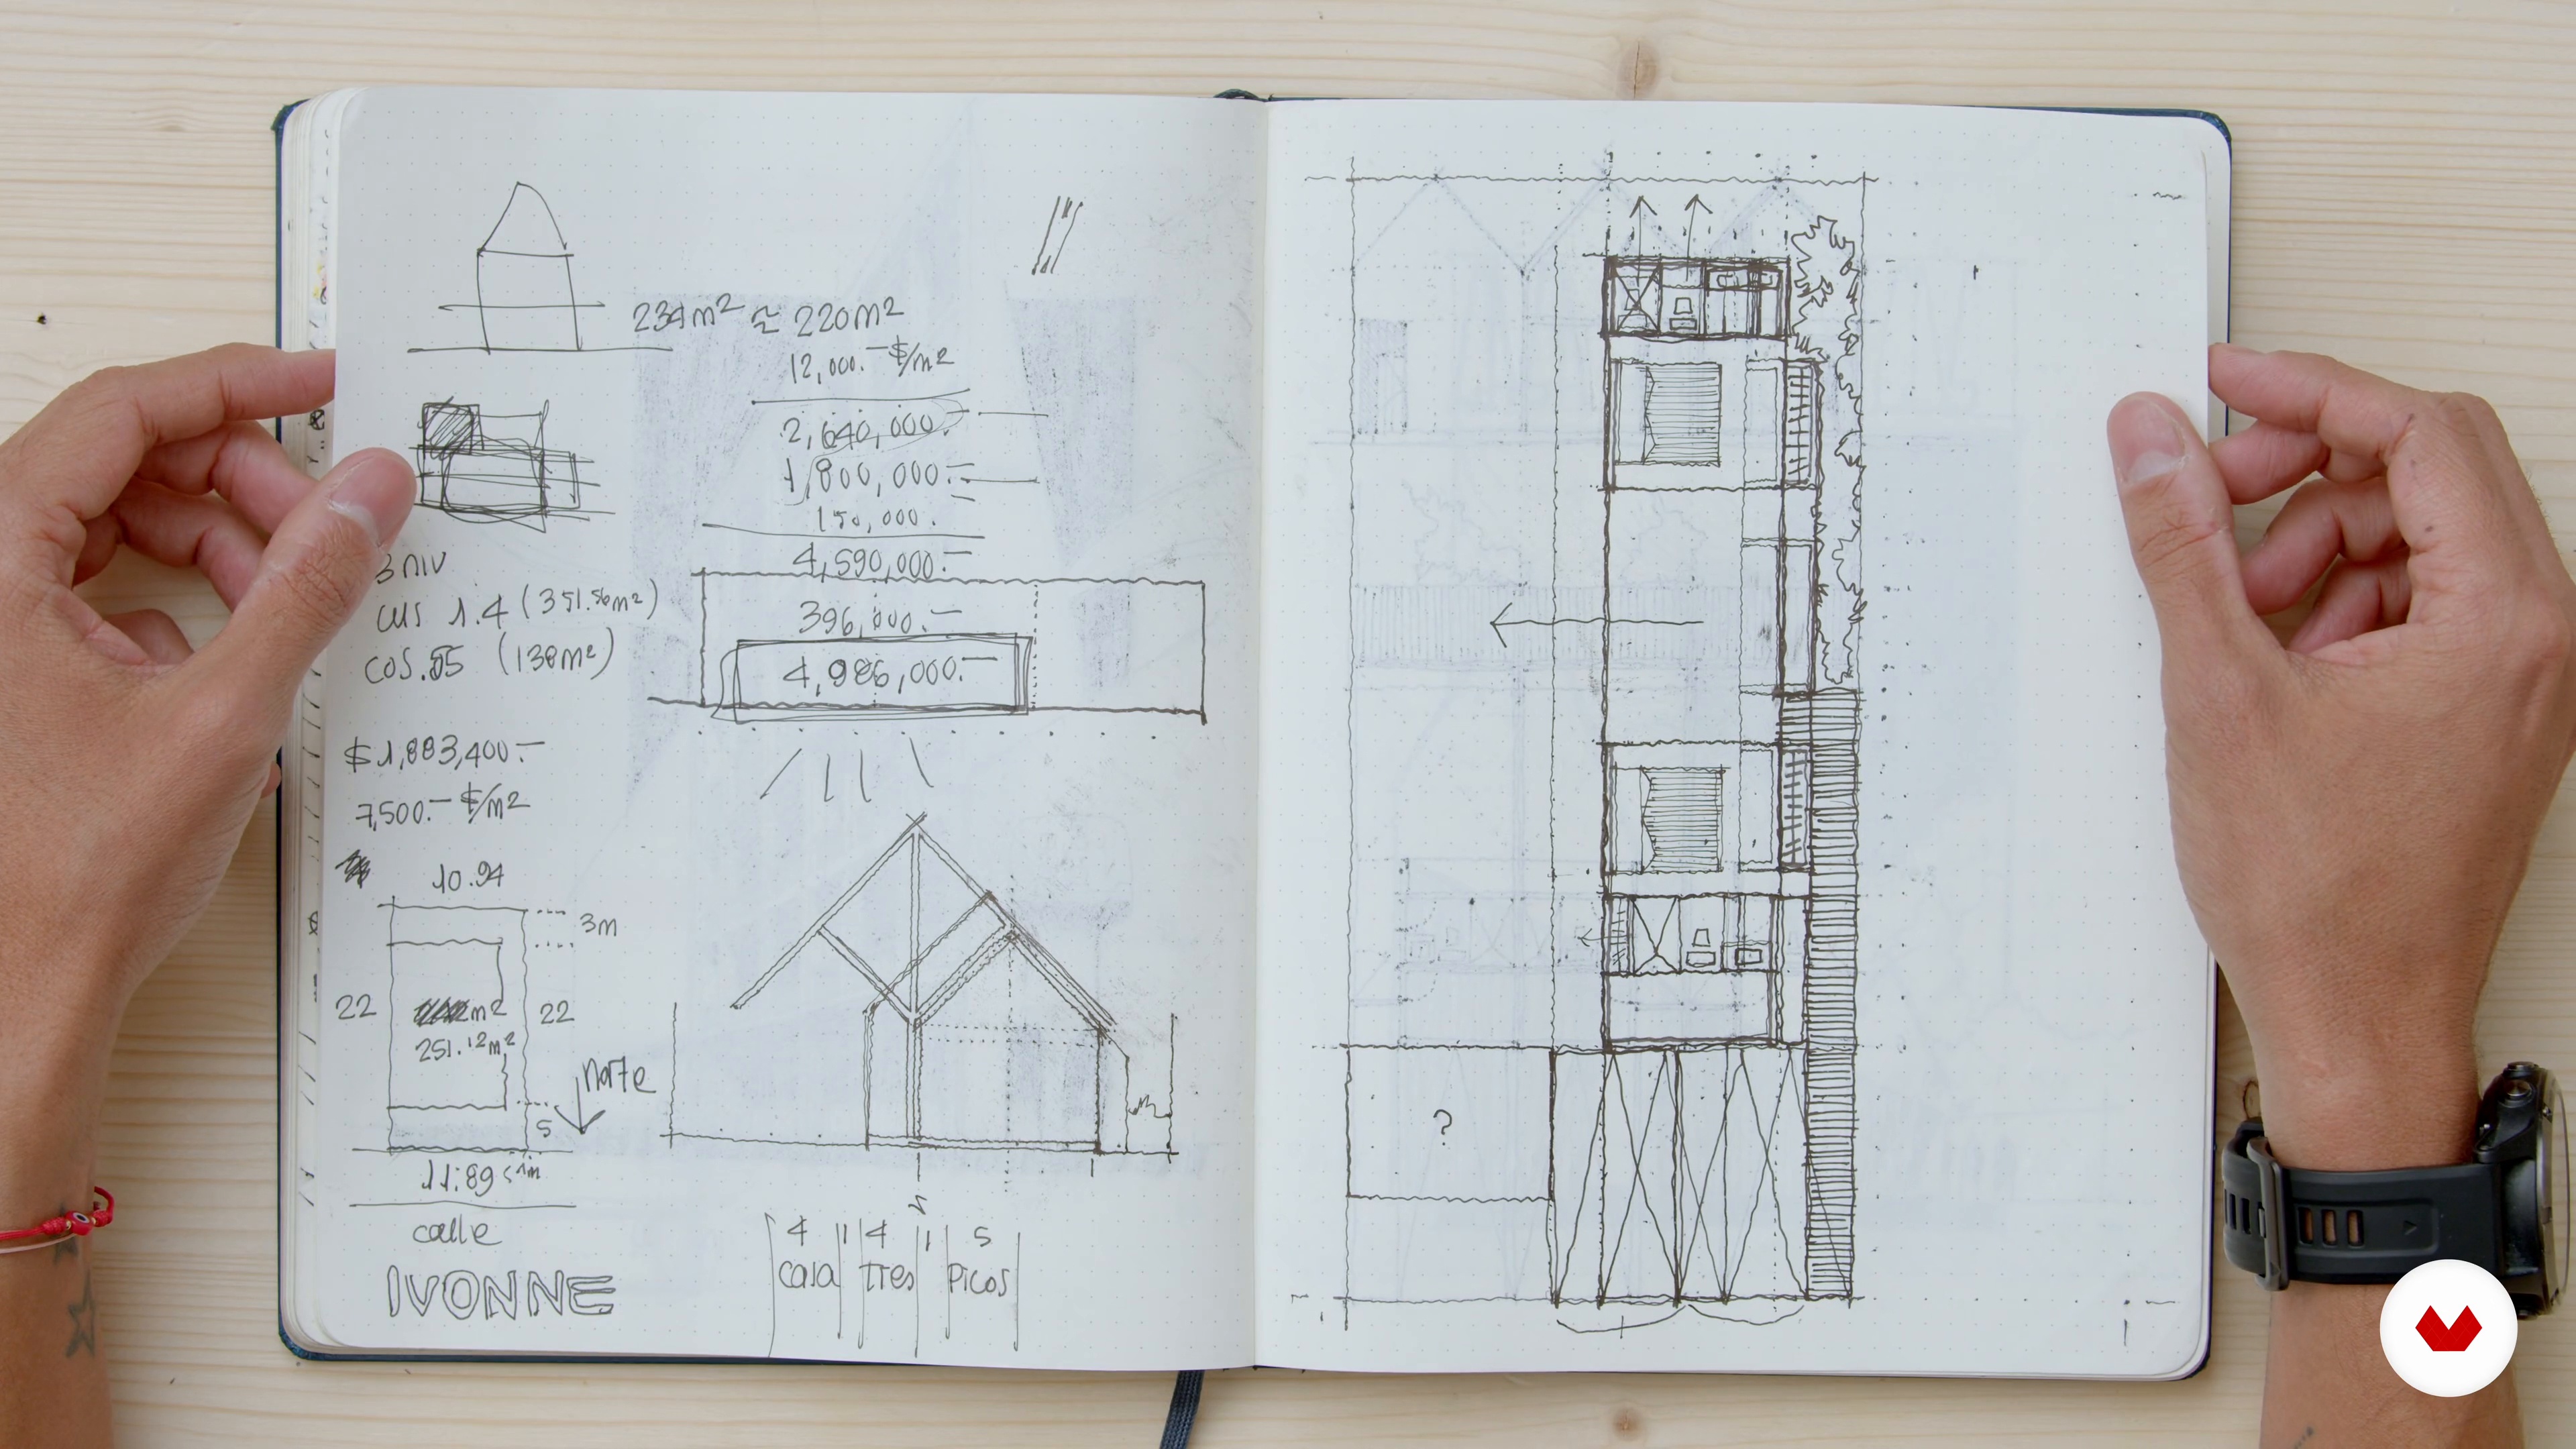 234m² ≈ 220m²
12,000.— $/m²
2,640,000.
1,800,000.=
150,000.
4,590,000.—
396,000.—
4,986,000.—
3 NIV
CUS 1.4 (351.56m²)
COS .55 (138m²)
$1,883,400.—
7,500.— $/m²
10.94
3m
22
m2
22
251.12m²
norte
5
11.89
calle
IVONNE
4 1 4 1 5
casa tres picos
?